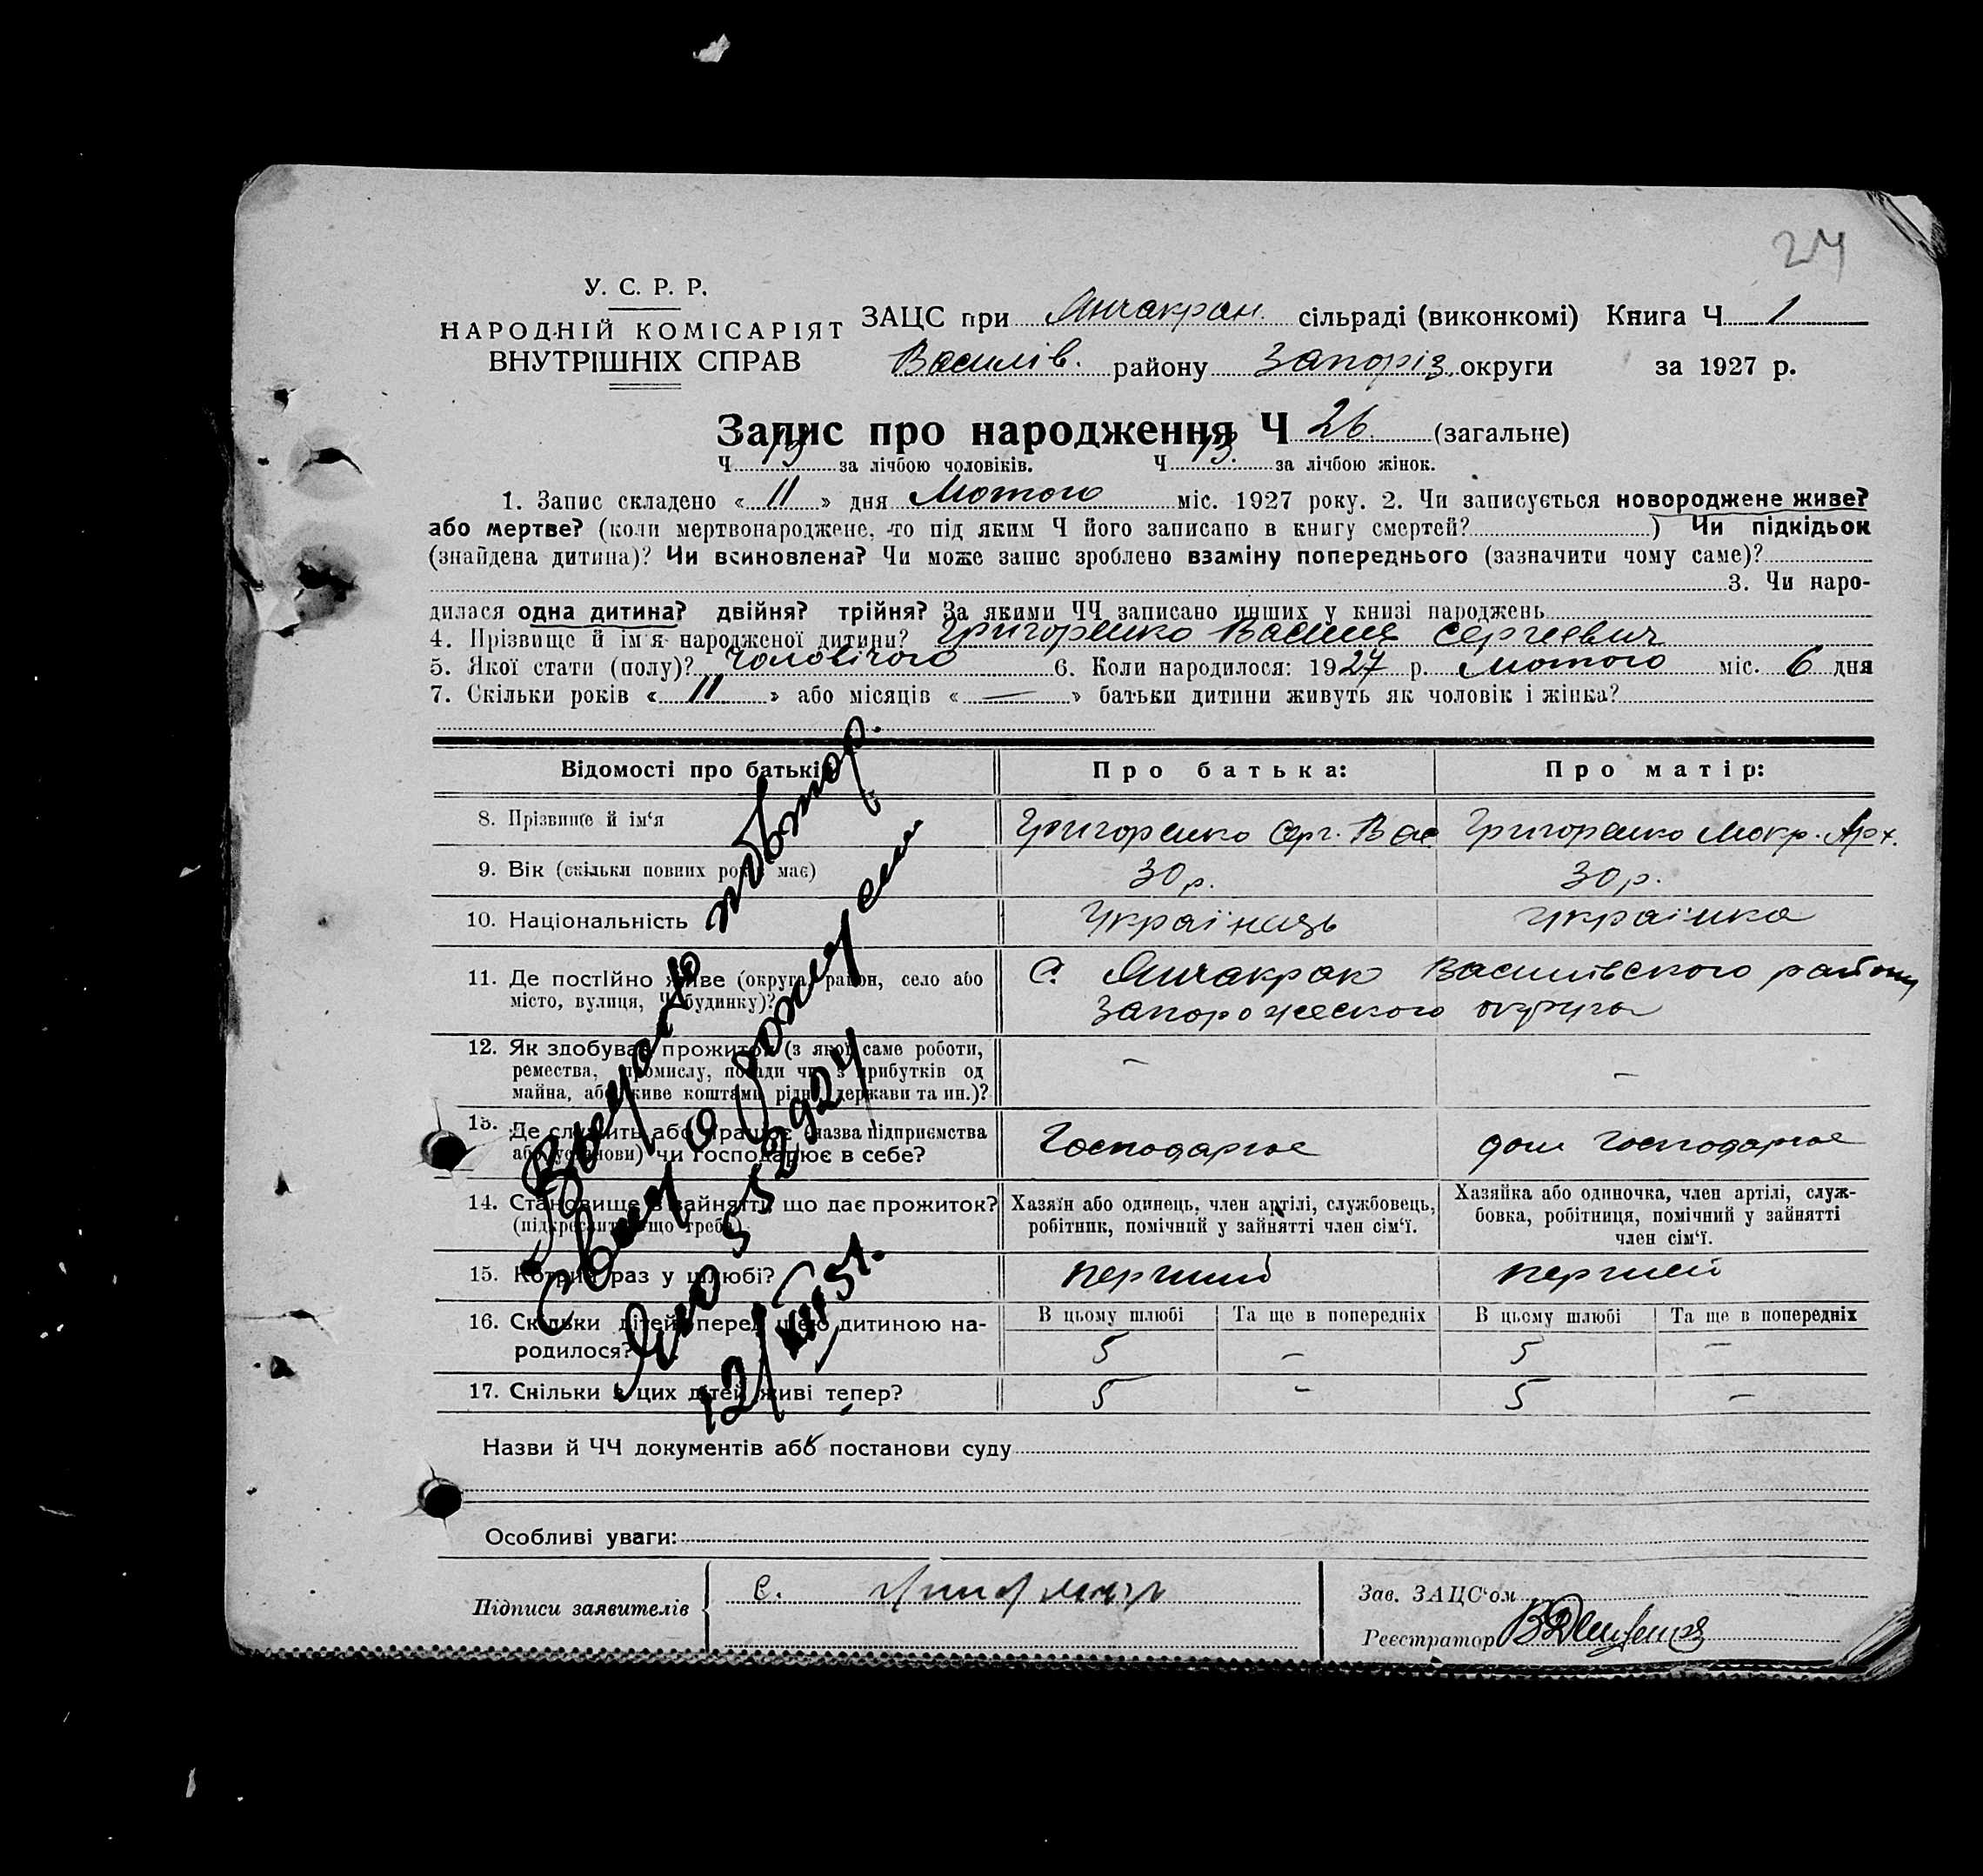 24
У. С. Р. Р.
НАРОДНІЙ КОМІСАРІЯТ
ВНУТРІШНІХ СПРАВ
ЗАЦС при Янчакран. сільраді (виконкомі) Книга Ч 1
Василів. району Запоріз. округи за 1927 р.
Запис про народження Ч 26 (загальне)
Ч 13 за лічбою чоловіків. Ч 13. за лічбою жінок.
1. Запис складено « 11 » дня Лютого міс. 1927 року. 2. Чи записується новороджене живе?
або мертве? (коли мертвонароджене, то під яким Ч його записано в книгу смертей? ) Чи підкідьок
(знайдена дитина)? Чи всиновлена? Чи може запис зроблено взаміну попереднього (зазначити чому саме)?
3. Чи наро-
дилася одна дитина? двійня? трійня? За якими ЧЧ записано инших у книзі народжень
4. Прізвище й ім'я народженої дитини? Григоренко Василь Сергиевич
5. Якої стати (полу)? Чоловічого 6. Коли народилося: 1927 р. Лютого міс. 6 дня
7. Скільки років « 11 » або місяців « — » батьки дитини живуть як чоловік і жінка?
Відомості про батьків Про батька: Про матір:
8. Прізвище й ім'я Григоренко Серг. Вас Григоренко Мокр. Арх.
9. Вік (скільки повних років має) 30 р. 30 р.
10. Національність Українець Українка
11. Де постійно живе (округа, район, село або С. Янчакрак Василівского району
місто, вулиця, Ч будинку)? Запорожеского округа
12. Як здобуває прожиток (з якої саме роботи, – –
ремества, промислу, посади чи з прибутків од
майна, або живе коштами рідні, держави та ин.)?
13. Де служить або працює (назва підприємства
або установи) чи господарює в себе? Господарює дом господарює
14. Становище в зайнятті, що дає прожиток? Хазяїн або одинець, член артілі, службовець, Хазяйка або одиночка, член артілі, служ-
(підкреслити що треба) робітник, помічний у зайнятті член сім'ї. бовка, робітниця, помічний у зайнятті
член сім'ї.
15. Котрий раз у шлюбі? перший первшей
16. Скільки дітей перед цією дитиною на- В цьому шлюбі Та ще в попередніх В цьому шлюбі Та ще в попередніх
родилося? 5 – 5 –
17. Скільки з цих дітей живі тепер? 5 – 5 –
повтор.
Свид о рожд
12/
Назви й ЧЧ документів або постанови суду
Особливі уваги:
Підписи заявителів С.
Зав. ЗАЦС'ом
Реєстратор